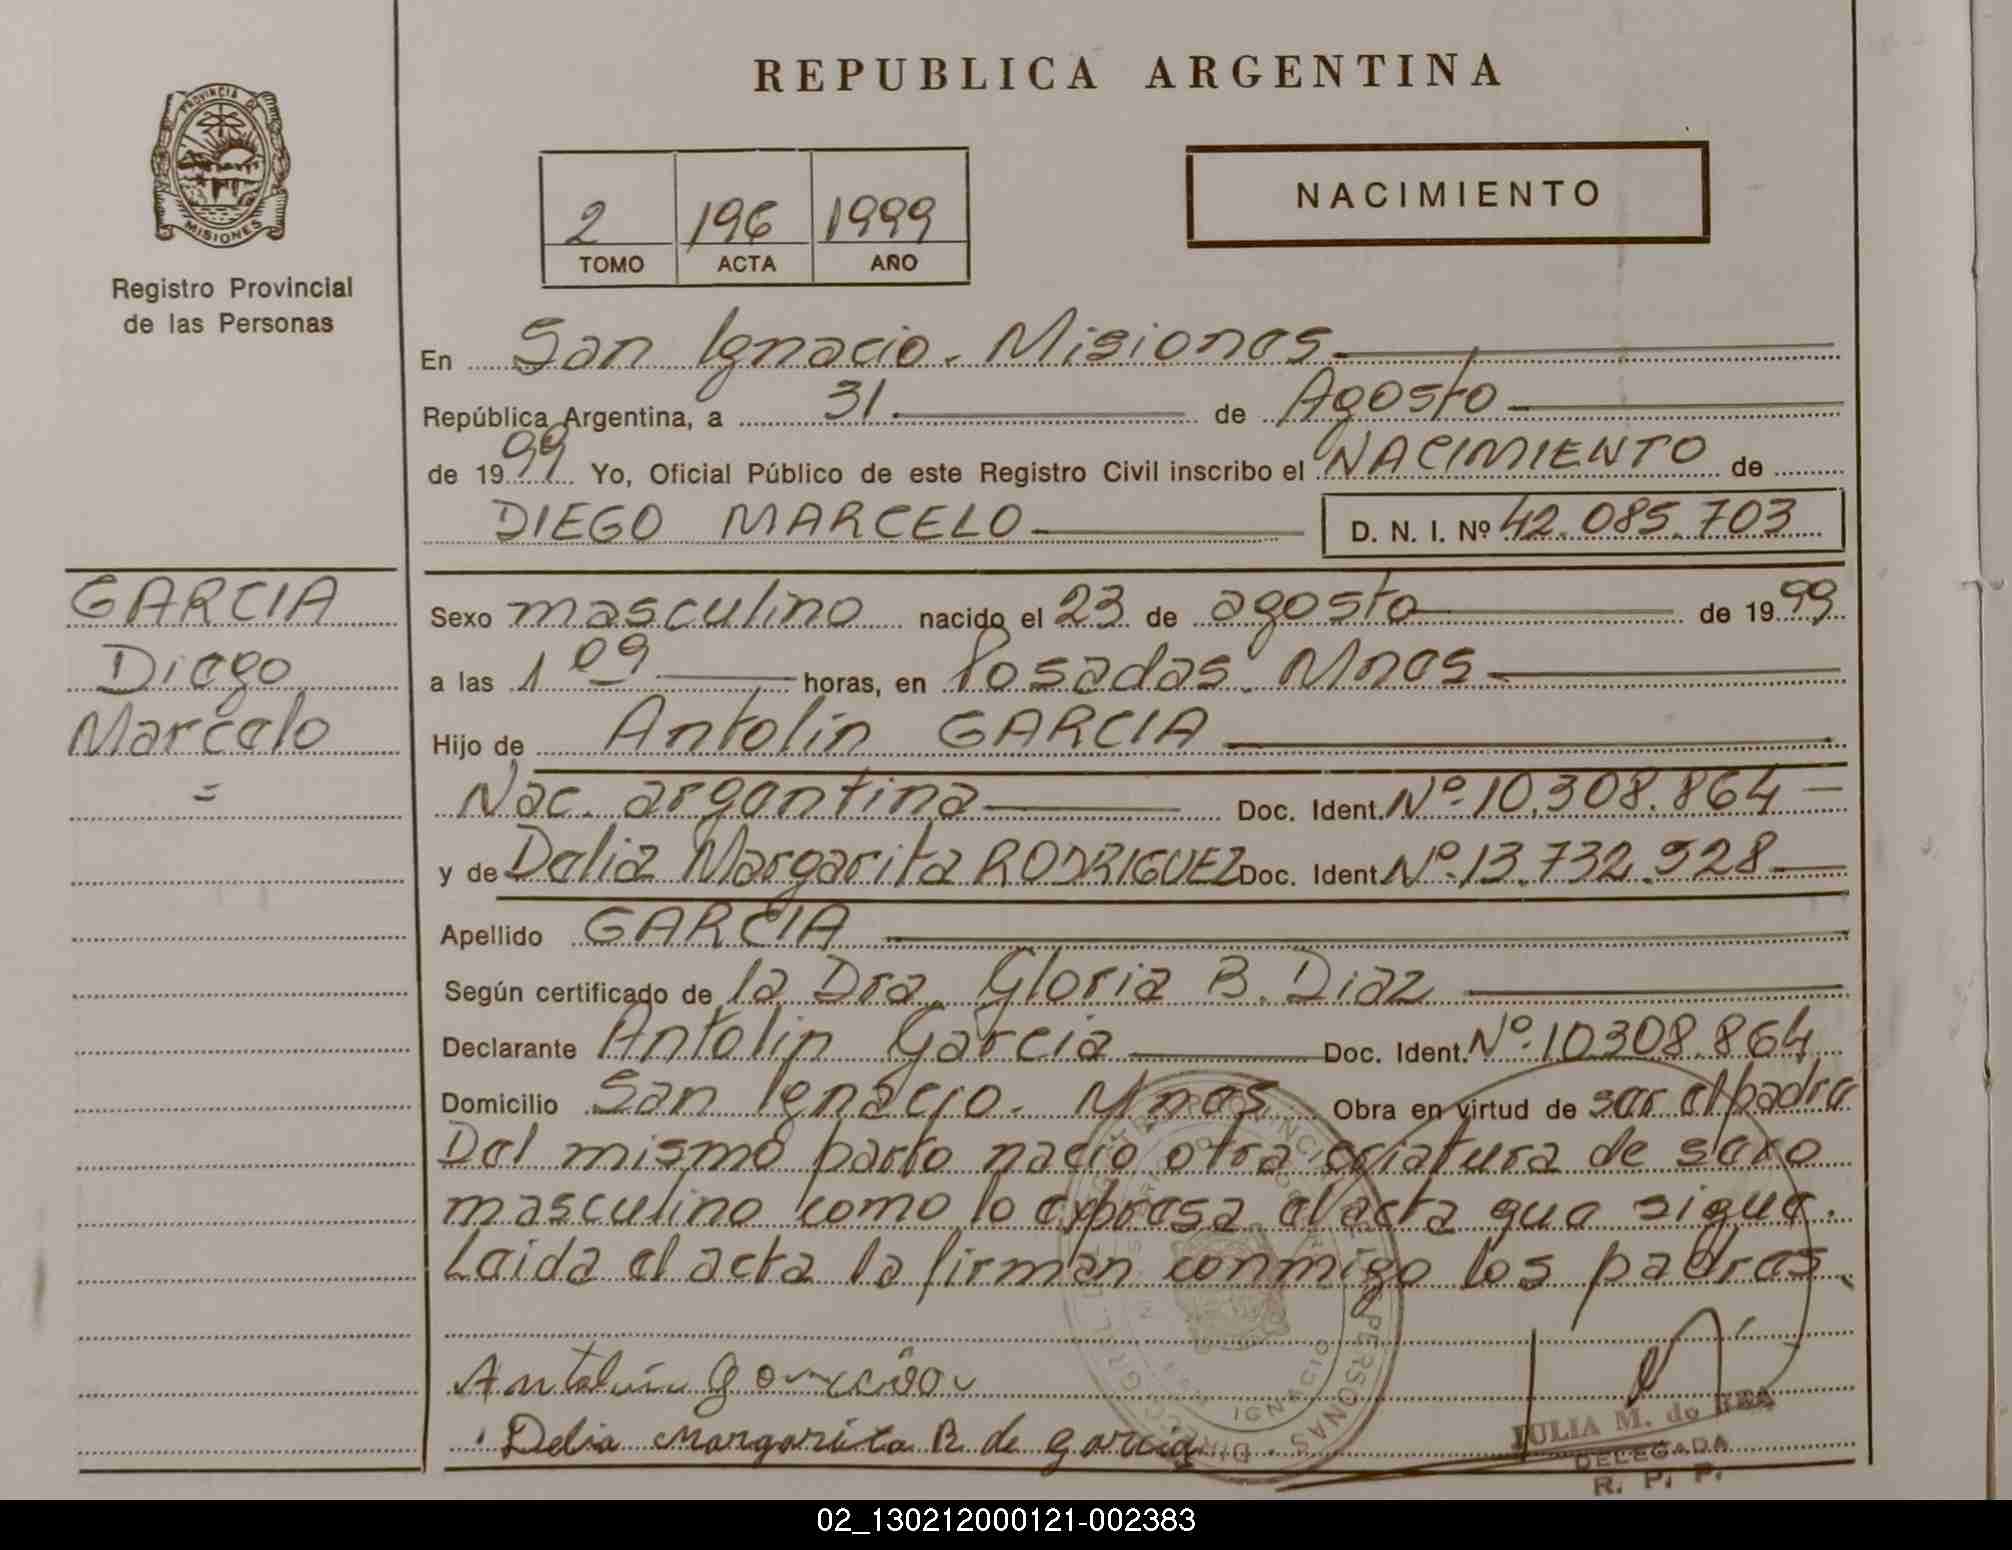 REPUBLICA ARGENTINA
PROVINCIA DE
MISIONES
Registro Provincial
de las Personas
2 196 1999
TOMO ACTA AÑO
NACIMIENTO
En San Ignacio. Misiones
República Argentina, a 31 de Agosto
de 1999 Yo, Oficial Público de este Registro Civil inscribo el NACIMIENTO de
DIEGO MARCELO D. N. I. Nº 42.085.703
GARCIA
Diego
Marcelo
=
Sexo masculino nacido el 23 de agosto de 1999
a las 1 09 horas, en Posadas. Mnes
Hijo de Antolín GARCIA
Nac. argentina Doc. Ident. Nº 10.308.864
y de Delia Margarita RODRIGUEZ Doc. Ident. Nº 13.732.928
Apellido GARCIA
Según certificado de la Dra. Gloria B. Diaz
Declarante Antolin Garcia Doc. Ident. Nº 10308.864
Domicilio San Ignacio. Mnes Obra en virtud de ser el padre
Del mismo parto nació otra criatura de sexo
masculino como lo expresa el acta que sigue.
Leida el acta la firman conmigo los padres.
Antolin
Delia Margarita R de Garcia
JULIA M. de
DELEGADA
R. P. P.
02_130212000121-002383